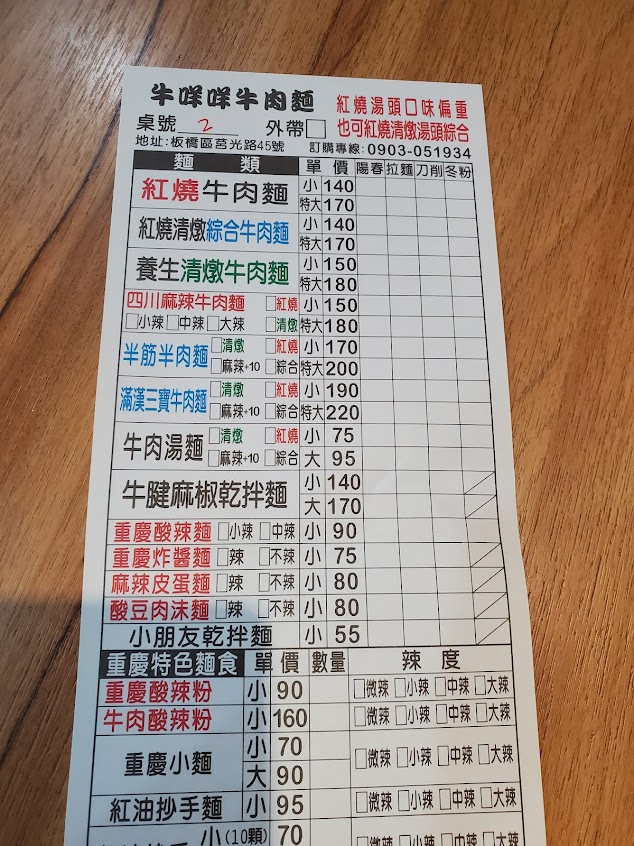 牛咩咩牛肉麵
紅燒湯頭口味偏重
桌號 2 外帶□
也可紅燒清燉湯頭綜合
地址:板橋區莒光路45號 訂購專線:0903-051934
麵類 單價 陽春 拉麵 刀削 冬粉
紅燒牛肉麵 小 140
特大 170
紅燒清燉綜合牛肉麵 小 140
特大 170
養生清燉牛肉麵 小 150
特大 180
四川麻辣牛肉麵 □紅燒 小 150
□小辣 □中辣 □大辣 □清燉 特大 180
半筋半肉麵 □清燉 □紅燒 小 170
□麻辣+10 □綜合 特大 200
滿漢三寶牛肉麵 □清燉 □紅燒 小 190
□麻辣+10 □綜合 特大 220
牛肉湯麵 □清燉 □紅燒 小 75
□麻辣+10 □綜合 大 95
牛腱麻椒乾拌麵 小 140
大 170
重慶酸辣麵 □小辣 □中辣 小 90
重慶炸醬麵 □辣 □不辣 小 75
麻辣皮蛋麵 □辣 □不辣 小 80
酸豆肉沫麵 □辣 □不辣 小 80
小朋友乾拌麵 小 55
重慶特色麵食 單價 數量 辣度
重慶酸辣粉 小 90 □微辣 □小辣 □中辣 □大辣
牛肉酸辣粉 小 160 □微辣 □小辣 □中辣 □大辣
重慶小麵 小 70 □微辣 □小辣 □中辣 □大辣
大 90
紅油抄手麵 小 95 □微辣 □小辣 □中辣 □大辣
小(10顆) 70 □微辣 □小辣 □中辣 □大辣